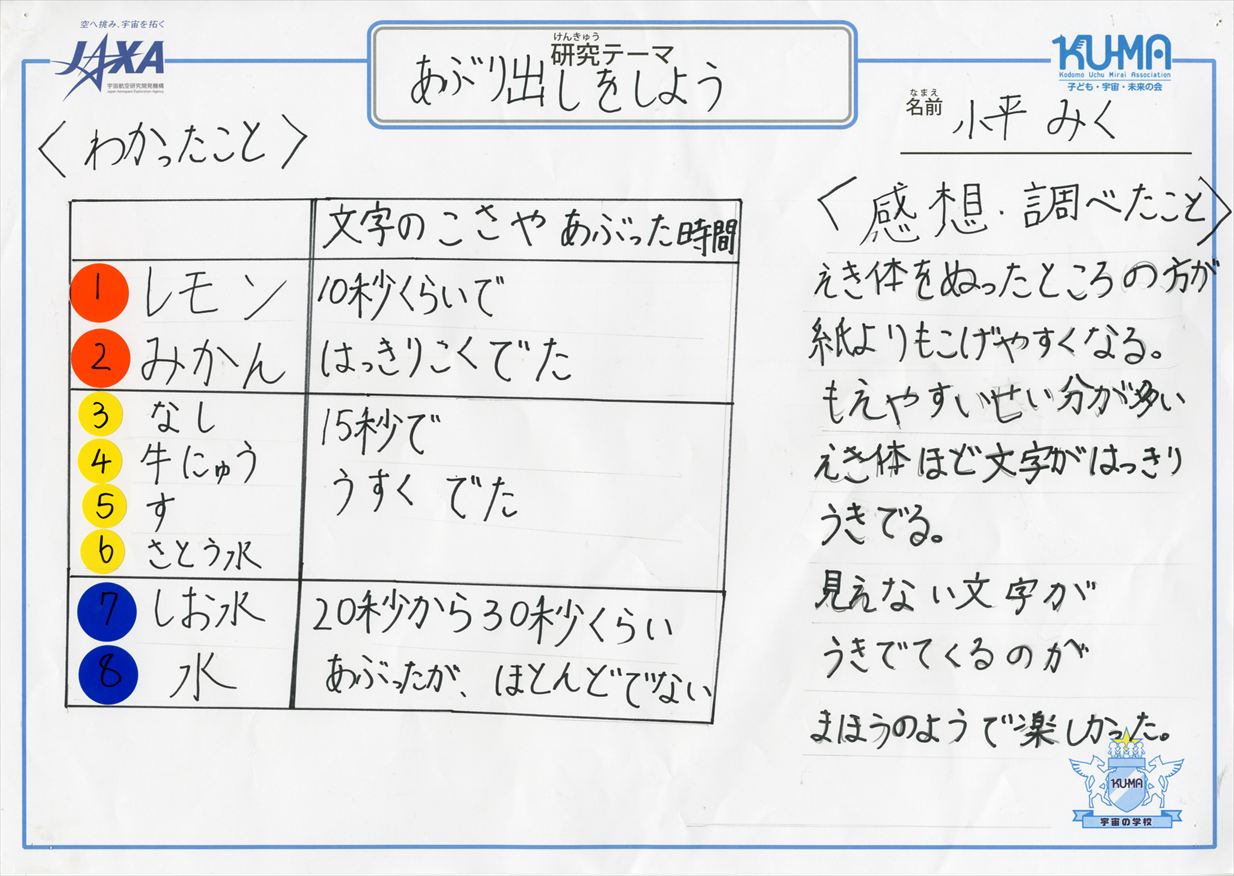 空へ挑み、宇宙を拓く
JAXA
宇宙航空研究開発機構
Japan Aerospace Exploration Agency
けんきゅう
研究テーマ
あぶり出しをしよう
KU-MA
Kodomo Uchu Mirai Association
子ども・宇宙・未来の会
なまえ
名前 小平 みく
〈わかったこと〉
文字のこさや あぶった時間
1 レモン
2 みかん
10秒くらいで
はっきりこくでた
3 なし
4 牛にゅう
5 す
6 さとう水
15秒で
うすく でた
7 しお水
8 水
20秒から30秒くらい
あぶったが、ほとんどでない
〈感想・調べたこと〉
えき体をぬったところの方が
紙よりもこげやすくなる。
もえやすいせい分が多い
えき体ほど文字がはっきり
うきでる。
見えない文字が
うきでてくるのが
まほうのようで楽しかった。
KUMA
宇宙の学校